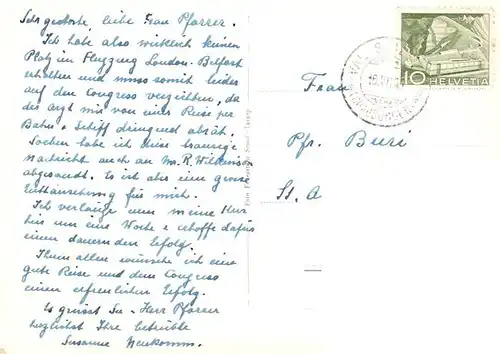 Sehr geehrte, liebe Frau Pfarrer.
Ich habe also wirklich keinen
Platz im Flugzug London-Belfast
erhalten und muss somit leider
auf den Congress verzichten, da
der Arzt mir von einer Reise per
Bahn + Schiff dringend abrät.
Soeben habe ich diese traurige
Nachricht auch an Mr. R. Wilkinson
abgesandt. Es ist aber eine grosse
Enttäuschung für mich.
Ich verlänge nun meine Kur
hier um eine Woche & erhoffe dafür
einen dauernden Erfolg.
Ihnen allen wünsche ich eine
gute Reise und dem Congress
einen erfreulichen Erfolg.
Es grüsst Sie + Herr Pfarrer
herzlichst Ihre betrübte
Susanne Neukomm.
10 HELVETIA
Frau
Pfr. Buri
St. A